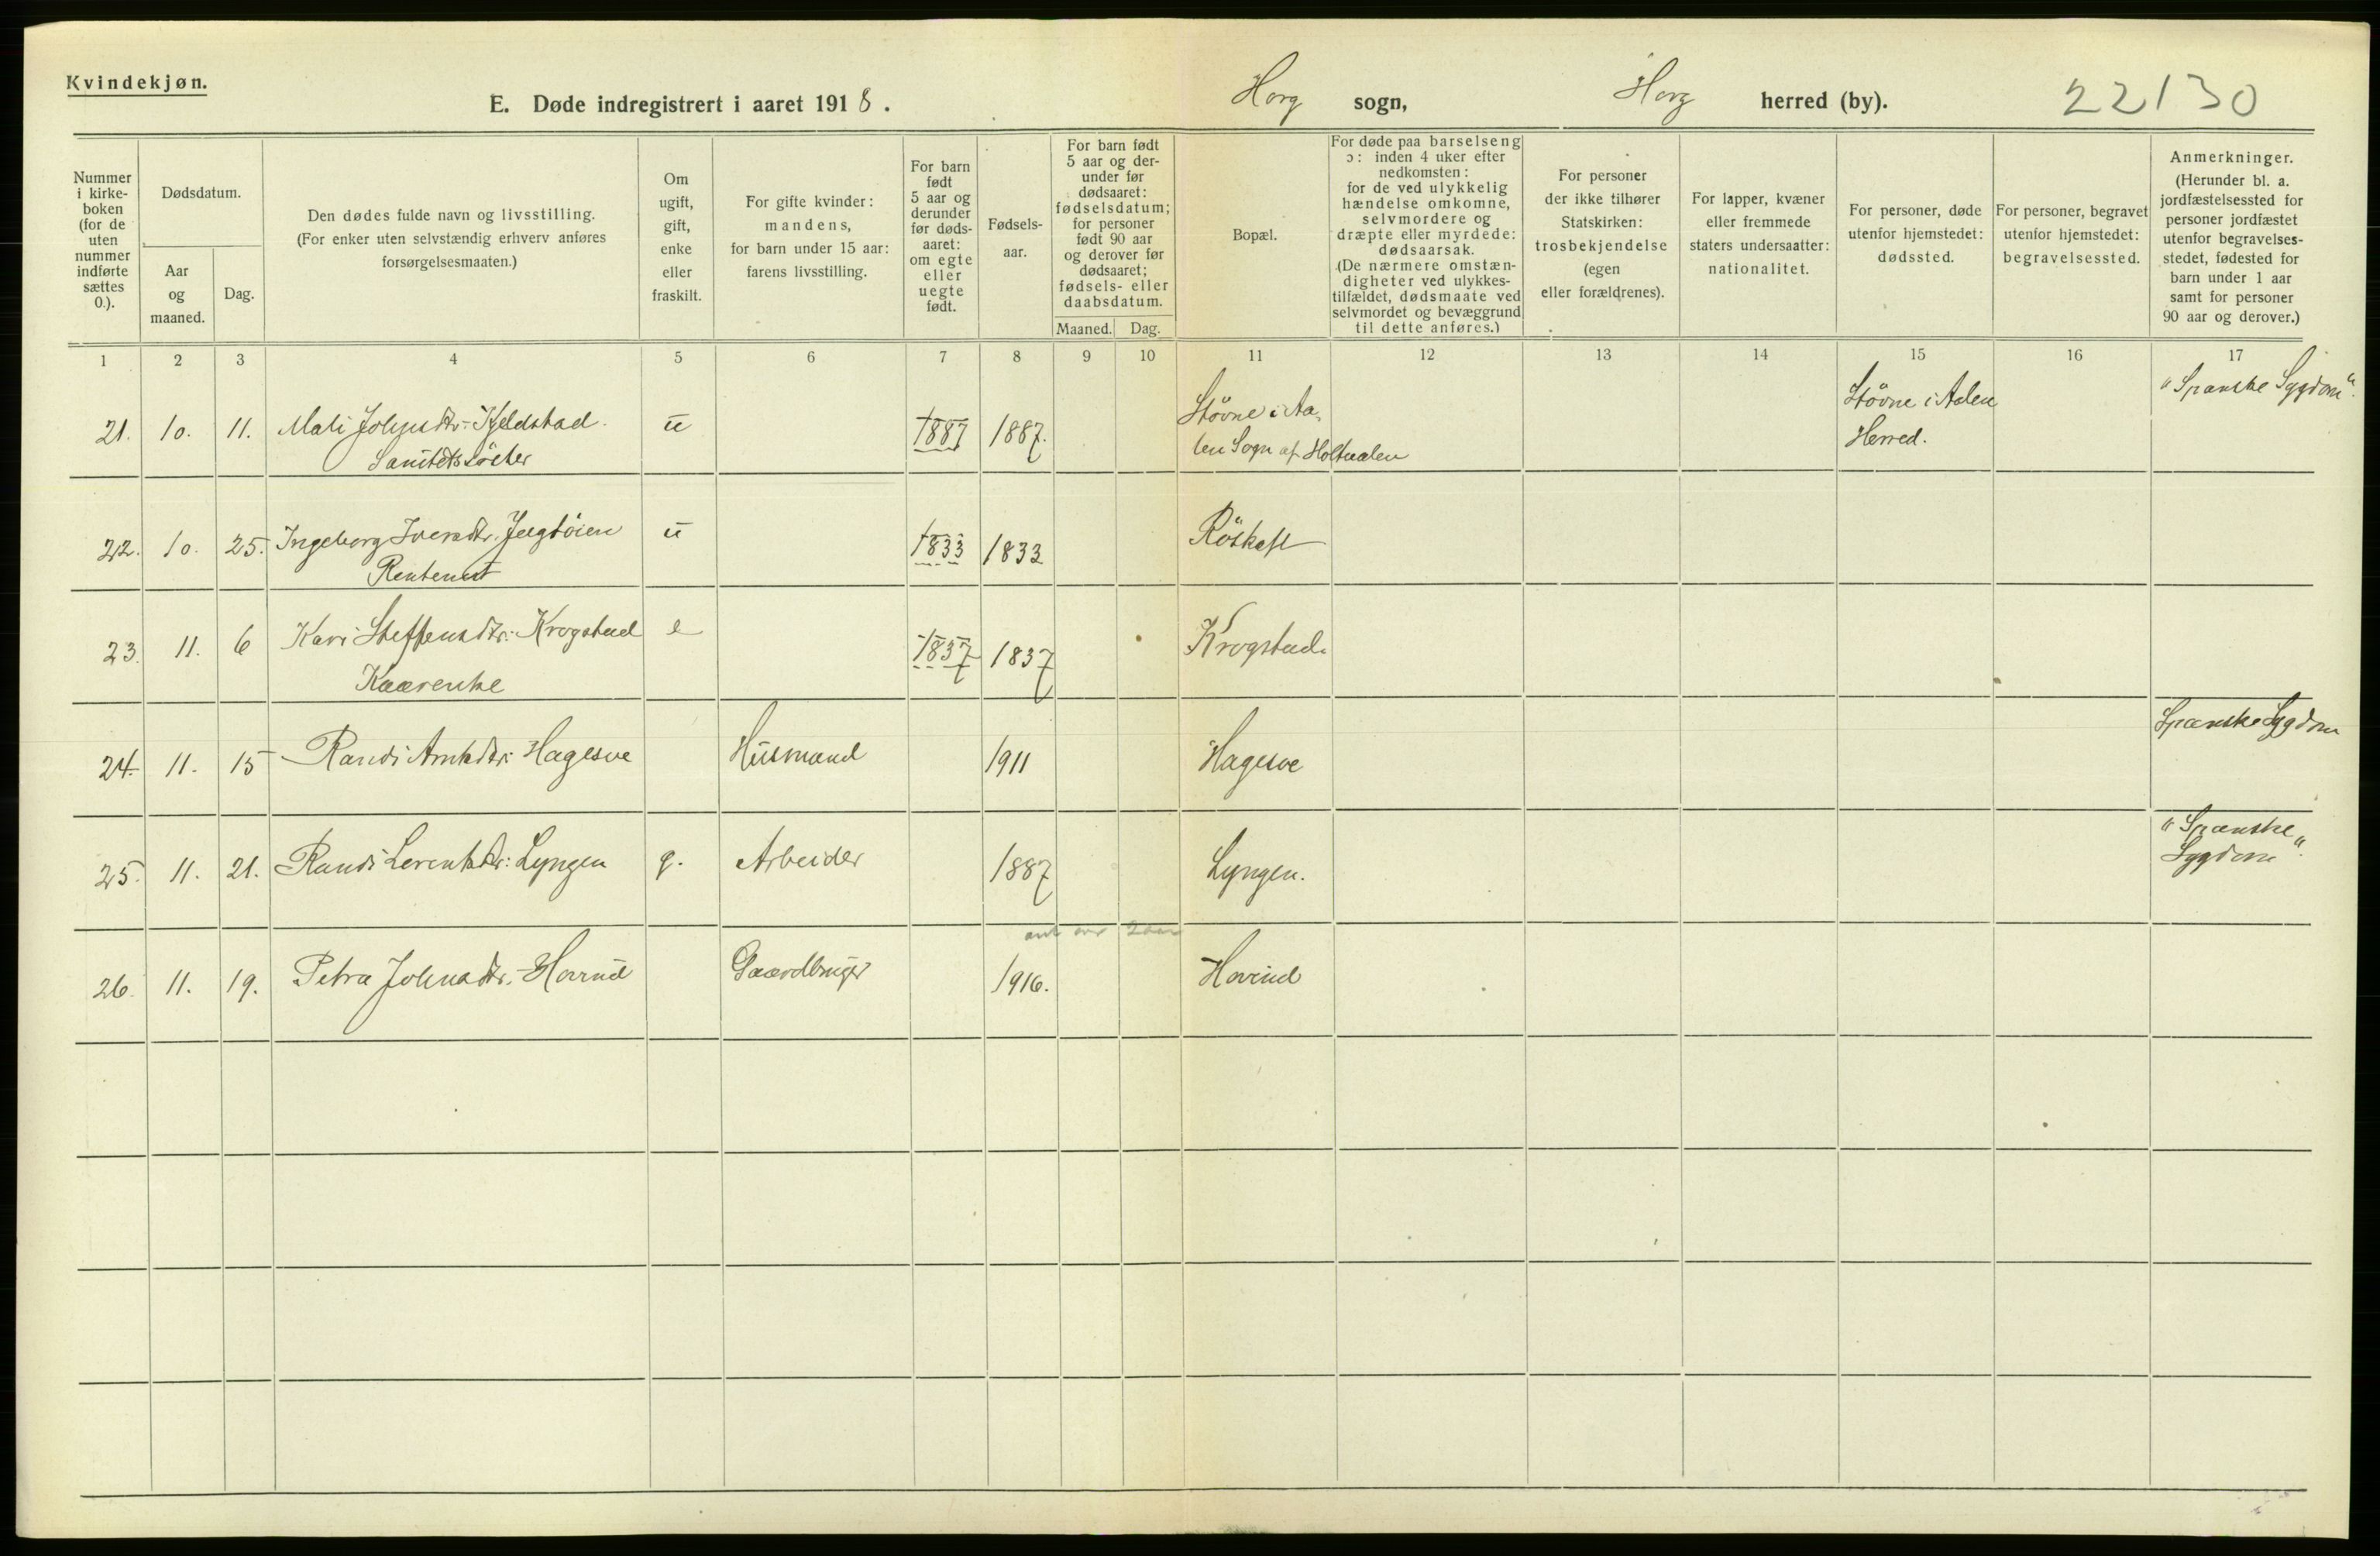 Kvindekjøn.
E. Døde indregistrert i aaret 1918.
Horg sogn, Horg herred (by).
22130
Nummer
i kirke-
boken
(for de
uten
nummer
indførte
sættes
0.).
Dødsdatum.
Aar
og
maaned.
Dag.
Den dødes fulde navn og livsstilling.
(For enker uten selvstændig erhverv anføres
forsørgelsesmaaten.)
Om
ugift,
gift,
enke
eller
fraskilt.
For gifte kvinder:
mandens,
for barn under 15 aar:
farens livsstilling.
For barn
født
5 aar og
derunder
før døds-
aaret:
om egte
eller
uegte
født.
Fødsels-
aar.
For barn født
5 aar og der-
under før
dødsaaret:
fødselsdatum;
for personer
født 90 aar
og derover før
dødsaaret;
fødsels- eller
daabsdatum.
Maaned. Dag.
Bopæl.
For døde paa barselseng
ɔ: inden 4 uker efter
nedkomsten:
for de ved ulykkelig
hændelse omkomne,
selvmordere og
dræpte eller myrdede:
dødsaarsak.
(De nærmere omstæn-
digheter ved ulykkes-
tilfældet, dødsmaate ved
selvmordet og bevæggrund
til dette anføres.)
For personer
der ikke tilhører
Statskirken:
trosbekjendelse
(egen
eller forældrenes).
For lapper, kvæner
eller fremmede
staters undersaatter:
nationalitet.
For personer, døde
utenfor hjemstedet:
dødssted.
For personer, begravet
utenfor hjemstedet:
begravelsessted.
Anmerkninger.
(Herunder bl. a.
jordfæstelsessted for
personer jordfæstet
utenfor begravelses-
stedet, fødested for
barn under 1 aar
samt for personer
90 aar og derover.)
1 2 3 4 5 6 7 8 9 10 11 12 13 14 15 16 17
21. 10. 11. Mali Johnsdtr. Kjeldstad. u 1887 1887. Støvne i Aa- Støvne i Aalen "Spanske Sygdom".
Sanitetssøster len Sogn af Holtaalen Herred.
22. 10. 25. Ingeborg Iversdtr. u 1833 1833 Röskaft
Rentenist
23. 11. 6 Kari Steffensdtr. Krogstad e 1837 1837 Krogstad.
Kaarenke
24. 11. 15 Randi Hagesve Husmand 1911 Hagesve Spanske Sygdom
25. 11. 21. Randi Lorentsdtr: Lyngen g. Arbeider 1887 Lyngen. "Spanske
Sygdom".
26. 11. 19. Petra Johnsdtr. Hovrud Gaardbruger 1916. Hovrud